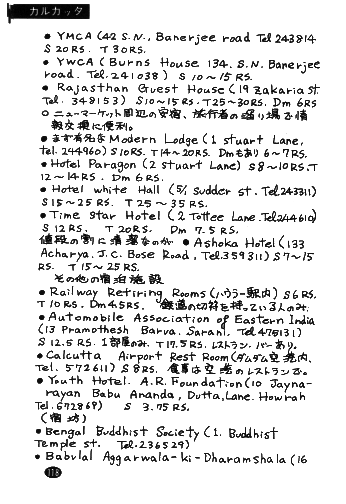 カルカッタ
• YMCA (42 S.N., Banerjee road Tel 243814
S 20RS. T 30RS.
• YWCA (Burns House 134. S.N. Banerjee
road. Tel. 241038) S 10~15 RS.
• Rajasthan Guest House (19 zakaria st.
Tel. 348153) S10~15RS. T25~30RS. Dm 6RS
○ ニューマーケット周辺の安宿、旅行者の溜り場で情
報交換に便利。
• まず有名な Modern Lodge (1 stuart Lane,
Tel. 244960) S10RS. T14~20RS. Dmもあり 6~7RS.
• Hotel Paragon (2 stuart Lane) S8~10RS. T
12~14RS. Dm 6RS.
• Hotel white Hall (5/1 sudder st. Tel 243311)
S15~25RS. T25~35RS.
• Time Star Hotel (2 Tottee Lane. Tel 244610)
S 12RS. T 20RS. Dm 7.5 RS.
値段の割に清潔なのが • Ashoka Hotel (133
Acharya. J.C. Bose Road, Tel. 359311) S7~15
RS. T 15~25RS.
その他の宿泊施設
• Railway Retiring Rooms (ハウラー駅内) S6RS.
T10RS. Dm4.5RS. 鉄道の切符を持っている人のみ.
• Automobile Association of Eastern India
(13 Pramothesh Barva. Sarani. Tel 475131)
S 12.5 RS. 1部屋のみ. T 17.5RS. レストラン・バーあり。
• Calcutta Airport Rest Room (ダムダム空港内、
Tel. 572611) S 8RS. 食事は空港のレストランで。
• Youth Hotel. A.R. Foundation (10 Jayna-
rayan Babu Ananda, Dutta, Lane. Howrah
Tel. 672869) S 3.75 RS.
(宿坊)
• Bengal Buddhist Society (1. Buddhist
Temple st. Tel. 236529)
• Babulal Aggarwala-ki-Dharamshala (16